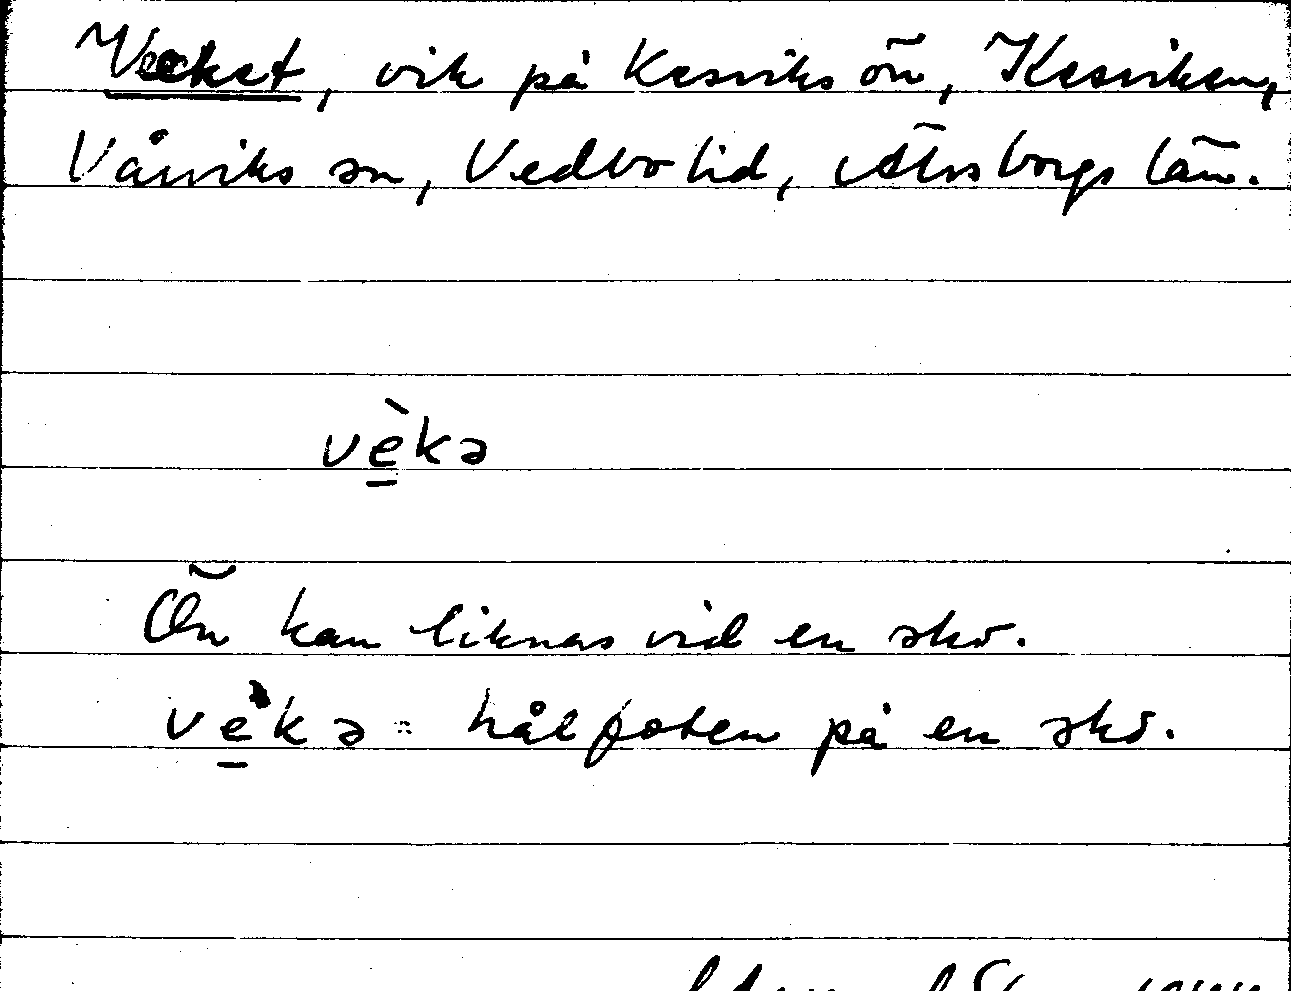 Vecket, vik på Kesviks ön, Kesviken,
Vårviks sn, Vedbo hd, Älvsborgs län.
vèkə
Ön kan liknas vid en sko.
vèkə = hålfoten på en sko.